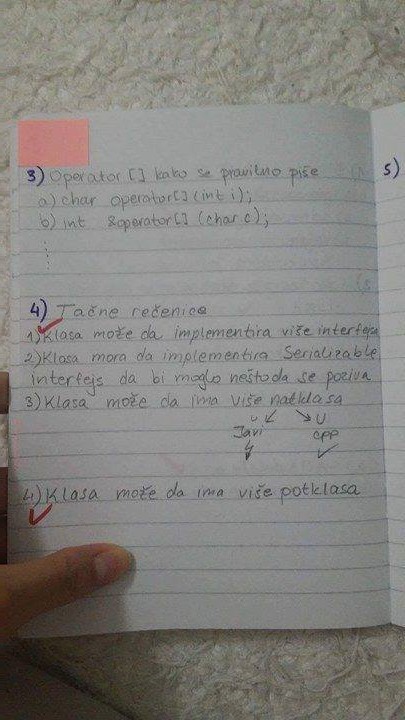 3) Operator [] kako se pravilno piše
a) char operator[] (int i);
b) int &operator[] (char c);
4) Tačne rečenice
1) Klasa može da implementira više interfejsa
2) Klasa mora da implementira Serializable
interfejs da bi moglo nešto da se poziva
3) Klasa može da ima više natklasa
U U
Javi cpp
4) Klasa može da ima više potklasa
5)